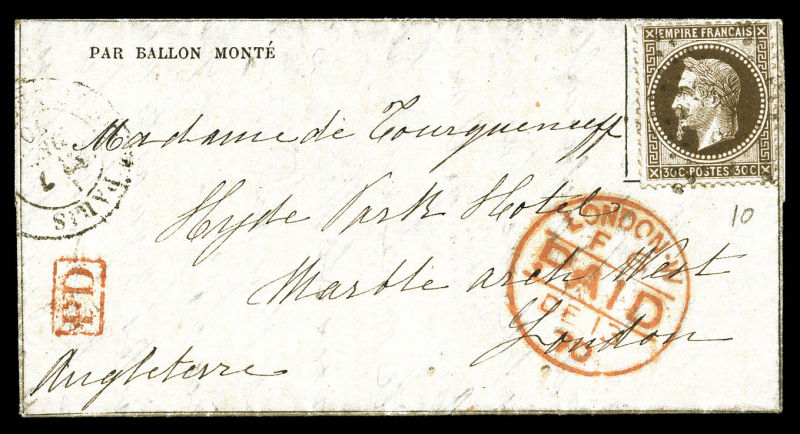 PAR BALLON MONTÉ
EMPIRE FRANCAIS
30C·POSTES 30C
Madame de Tourgueneff
Hyde Park Hotel
Marble arch West
London
Angleterre
PARIS
PD
LONDON·W
PAID
DE 13
70
10